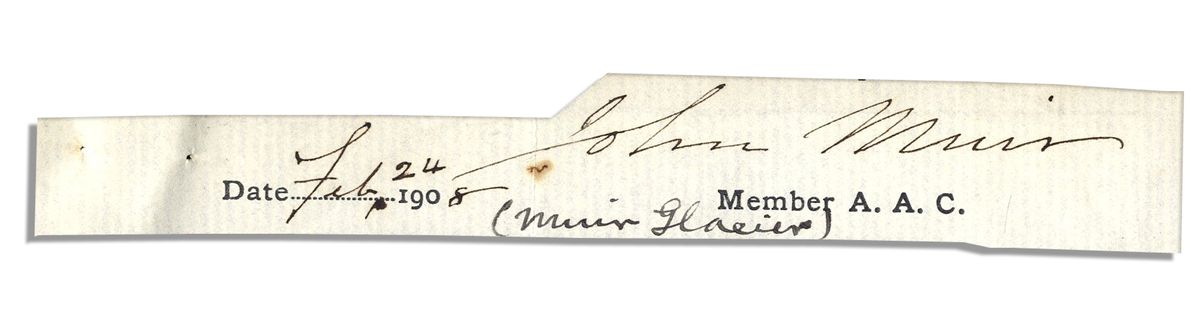 John Muir
Date Feb. 24 1908 Member A. A. C.
(Muir Glacier)